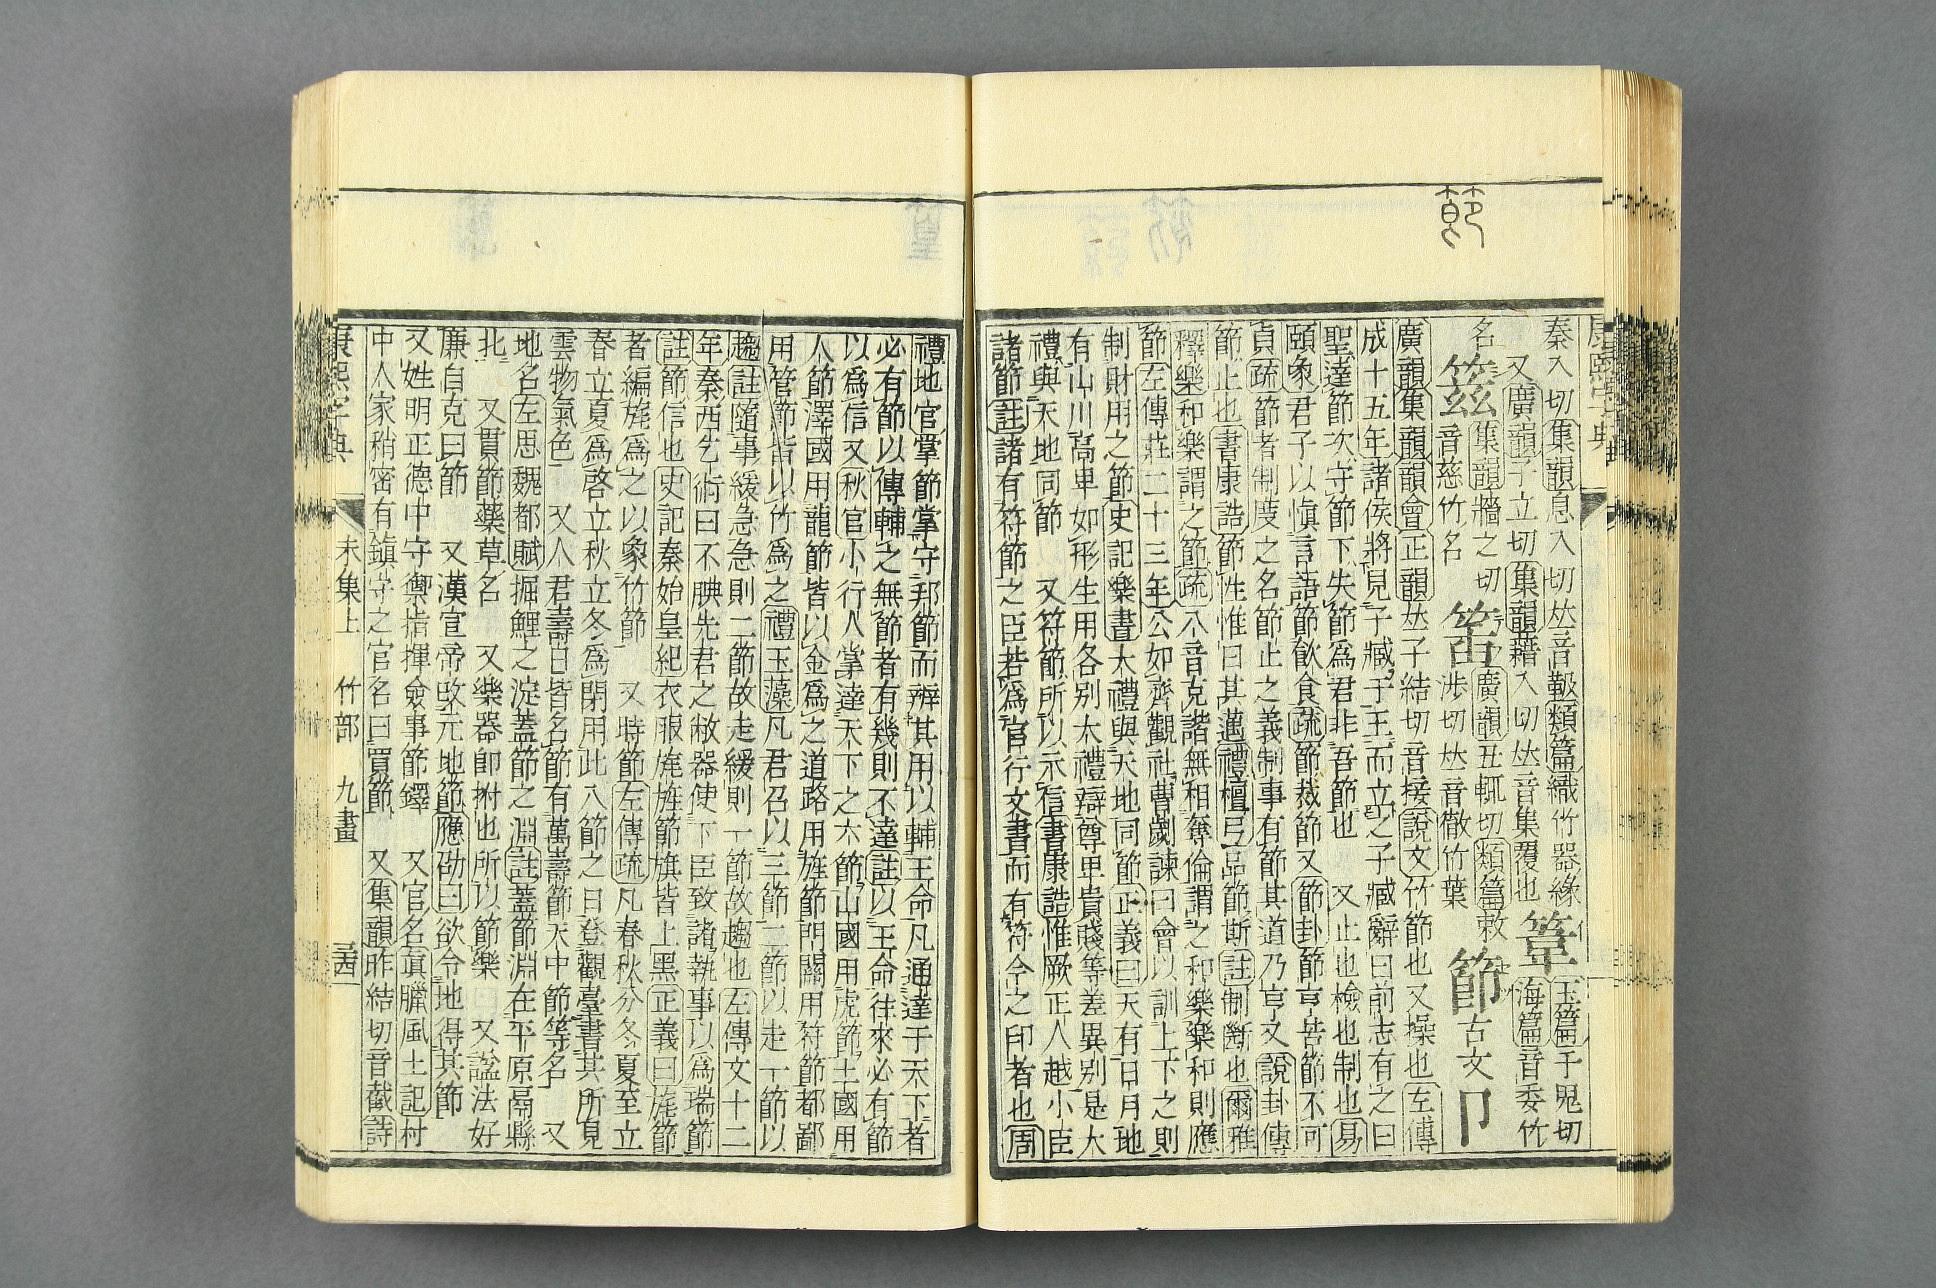 節
秦入切集韻息入切𠀤音靸類篇織竹器緣
又廣韻子立切集韻籍入切𠀤音集覆也
葦玉篇于鬼切
海篇音委竹
名
籔音慈竹名
集韻牆之切
廣韻丑輒切類篇敕
涉切𠀤音㣟竹葉
節古文卪
廣韻集韻韻會正韻𠀤子結切音接說文竹節也又操也左傳
成十五年諸侯將見子臧于王而立之子臧辭曰前志有之曰
聖達節次守節下失節爲君非吾節也 又止也檢也制也易
頤象君子以愼言語節飮食疏節裁節又節卦節亨苦節不可
貞疏節者制度之名節止之義制事有節其道乃亨又說卦傳
節止也書康誥節性惟日其邁禮檀弓品節斯註制斷也爾雅
釋樂和樂謂之節疏八音克諧無相奪倫謂之和樂樂和則應
節左傳莊二十三年公如齊觀社曹劌諫曰會以訓上下之則
制財用之節史記樂書大禮與天地同節正義曰天有日月地
有山川高卑如形生用各別大禮辯尊卑貴賤等差異別是大
禮與天地同節 又符節所以示信書康誥惟厥正人越小臣
諸節註諸有符節之臣若爲官行文書而有符令之印者也周
禮地官掌節掌守邦節而辨其用以輔王命凡通達于天下者
必有節以傳輔之無節者有幾則不達註以王命往來必有節
以爲信又秋官小行人掌達天下之六節山國用虎節土國用
人節澤國用龍節皆以金爲之道路用旌節門關用符節都鄙
用管節皆以竹爲之禮玉藻凡君召以三節二節以走一節以
趨註隨事緩急急則二節故走緩則一節故趨也左傳文十二
年秦西乞術曰不腆先君之敝器使下臣致諸執事以爲瑞節
註節信也史記秦始皇紀衣服旄旌節旗皆上黑正義曰旄節
者編旄爲之以象竹節 又時節左傳疏凡春秋分冬夏至立
春立夏爲啓立秋立冬爲閉用此八節之日登觀臺書其所見
雲物氣色 又人君壽日皆名節有萬壽節天中節等名 又
地名左思魏都賦掘鯉之淀蓋節之淵註蓋節淵在平原鬲縣
北 又貫節藥草名 又樂器卽拊也所以節樂 又諡法好
廉自克曰節 又漢宣帝改元地節應劭曰欲令地得其節
又姓明正德中守禦指揮僉事節鐸 又官名眞臘風土記村
中人家稍密有鎭守之官名曰買節 又集韻昨結切音截詩
康熙字典 未集上 竹部 九畫